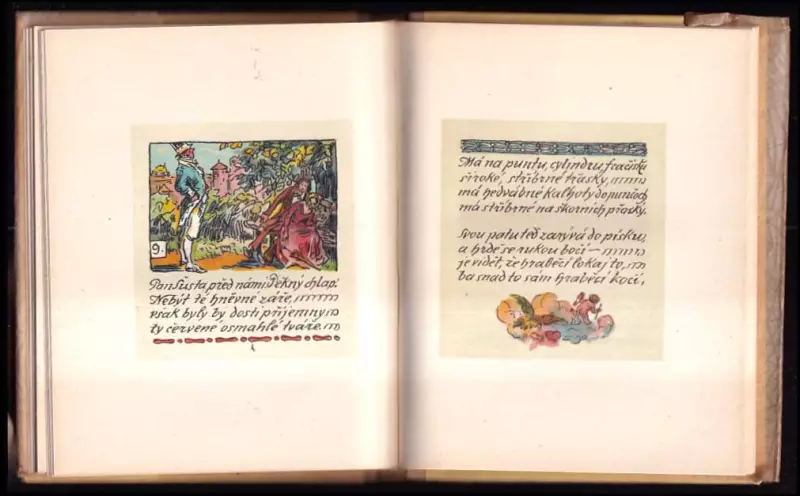 9.
Pan Šusta před námi. Pěkný chlap.
Nebýt té hněvné záře,
však byly by dosti příjemny
ty červené osmahlé tváře.
Má na puntu, cylindru, fráčisku
široké, stříbrné třásky,
má hedvábné kalhoty do punčoch
má stříbrné na škorních přasky.
Svou patu teď zarývá do písku,
a hrdě se rukou bočí —
je vidět, že hraběcí lokaj to,
ba snad to sám hraběcí kočí.